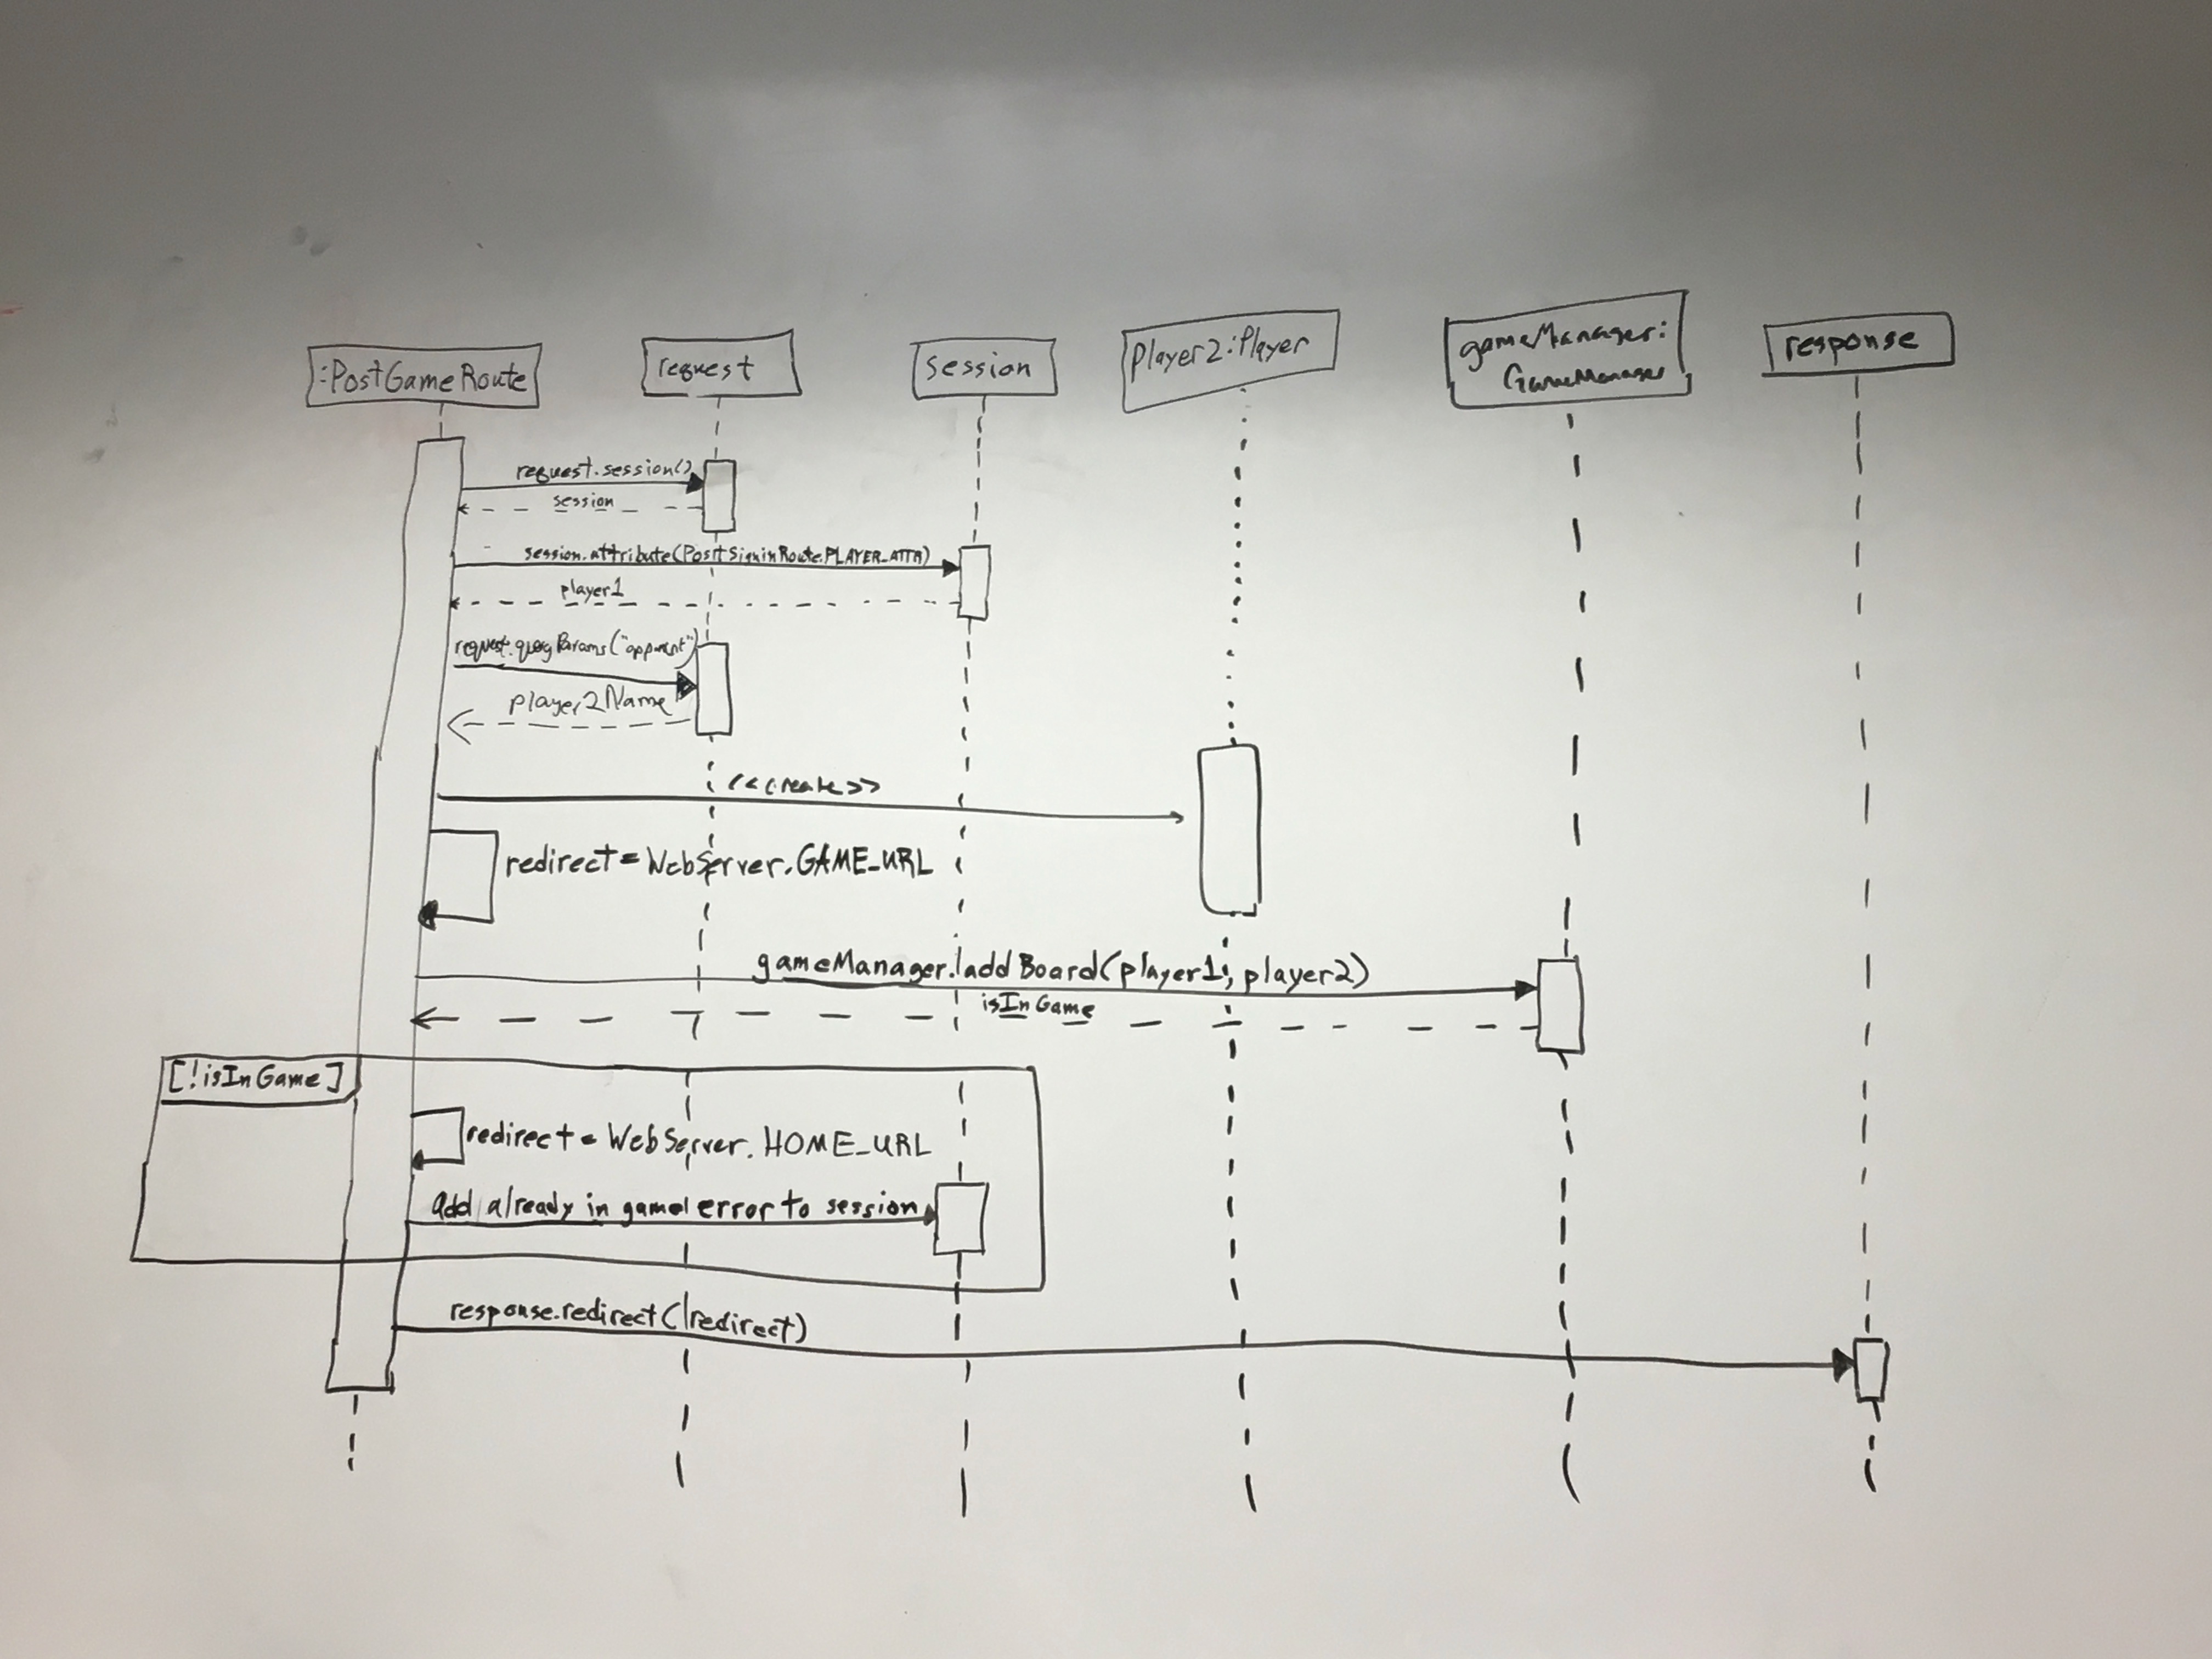 :PostGameRoute
request
session
Player2:Player
gameManager:
GameManager
response
request.session()
session
session.attribute(PostSigninRoute.PLAYER_ATTR)
player1
request.queryParams("opponent")
player2Name
<<create>>
redirect = WebServer.GAME_URL
gameManager.addBoard(player1, player2)
isInGame
[!isInGame]
redirect = WebServer.HOME_URL
add already in game error to session
response.redirect(redirect)